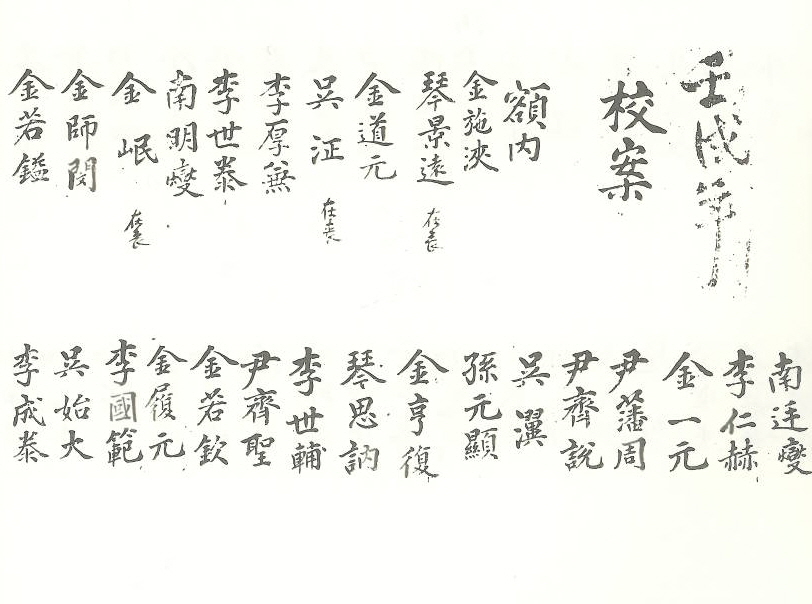 壬戌年
校案
額內
金施浹
琴景遠 在喪
金道元
吳䇓 在喪
李厚無
李世泰
南明燮
金岷 在喪
金師閔
金若鎰
南廷燮
李仁赫
金一元
尹藩周
尹齊說
吳瀷
孫元顯
金亨復
琴思訥
李世輔
尹齊聖
金若欽
金履元
李國範
吳始大
李成泰